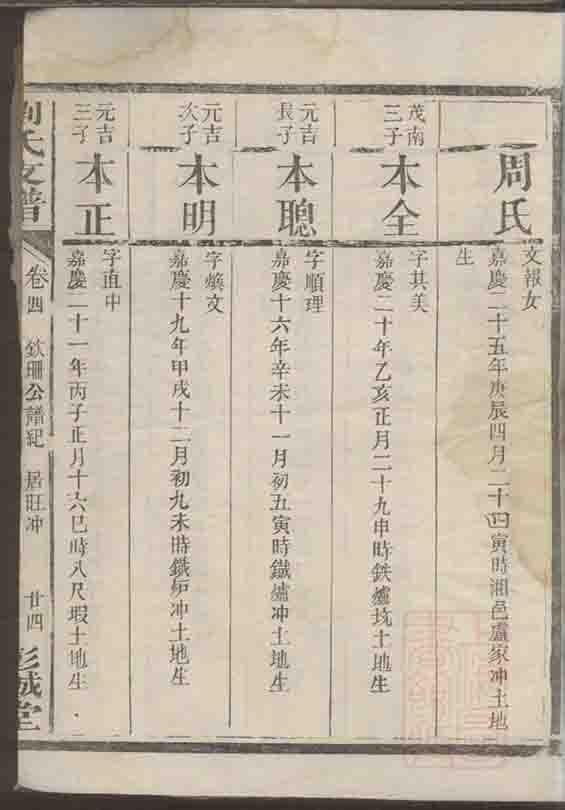 周氏
文報女
嘉慶二十五年庚辰四月二十四寅時湘邑盧家冲土地
生
茂南
三子
本全
字其美
嘉慶二十年乙亥正月二十九申時鉄爐坑土地生
元吉
長子
本聰
字順理
嘉慶十六年辛未十一月初五寅時鐵爐冲土地生
元吉
次子
本明
字煥文
嘉慶十九年甲戌十二月初九未時鐵炉冲土地生
元吉
三子
本正
字直中
嘉慶二十一年丙子正月十六巳時八尺塅土地生
刘氏支譜
卷四
欽珊公譜紀
居旺冲
廿四
彭城堂